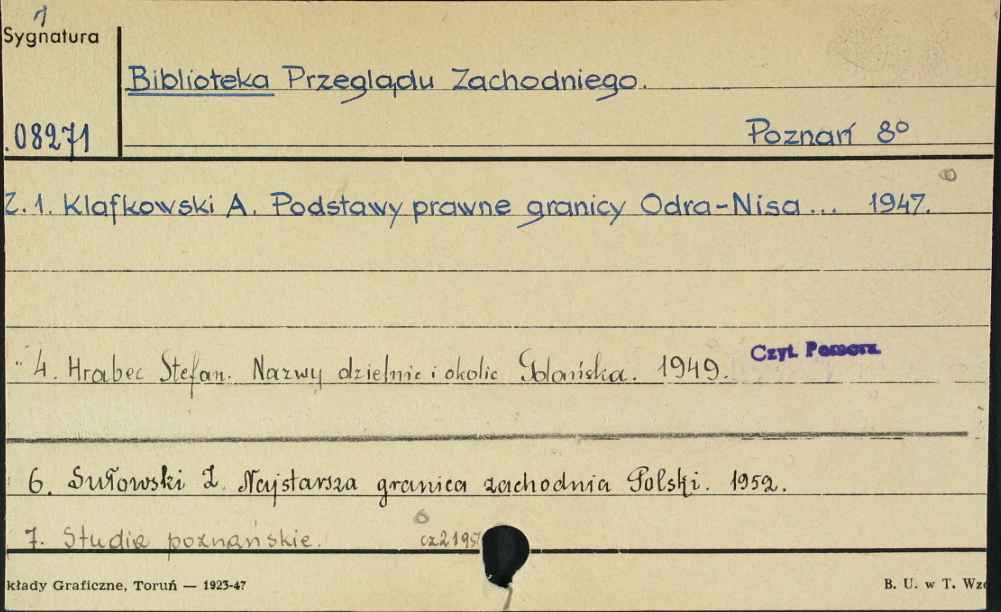 1
Sygnatura
Biblioteka Przeglądu Zachodniego.
08271
Poznań 8°
Z. 1. Klafkowski A. Podstawy prawne granicy Odra-Nisa ... 1947.
" 4. Hrabec Stefan. Nazwy dzielnic i okolic Gdańska. 1949.
Czyt. Pomorz.
6. Sułowski Z. Najstarsza granica zachodnia Polski. 1952.
7. Studia poznańskie. cz 2 195
kłady Graficzne, Toruń — 1923-47
B. U. w T. Wzo